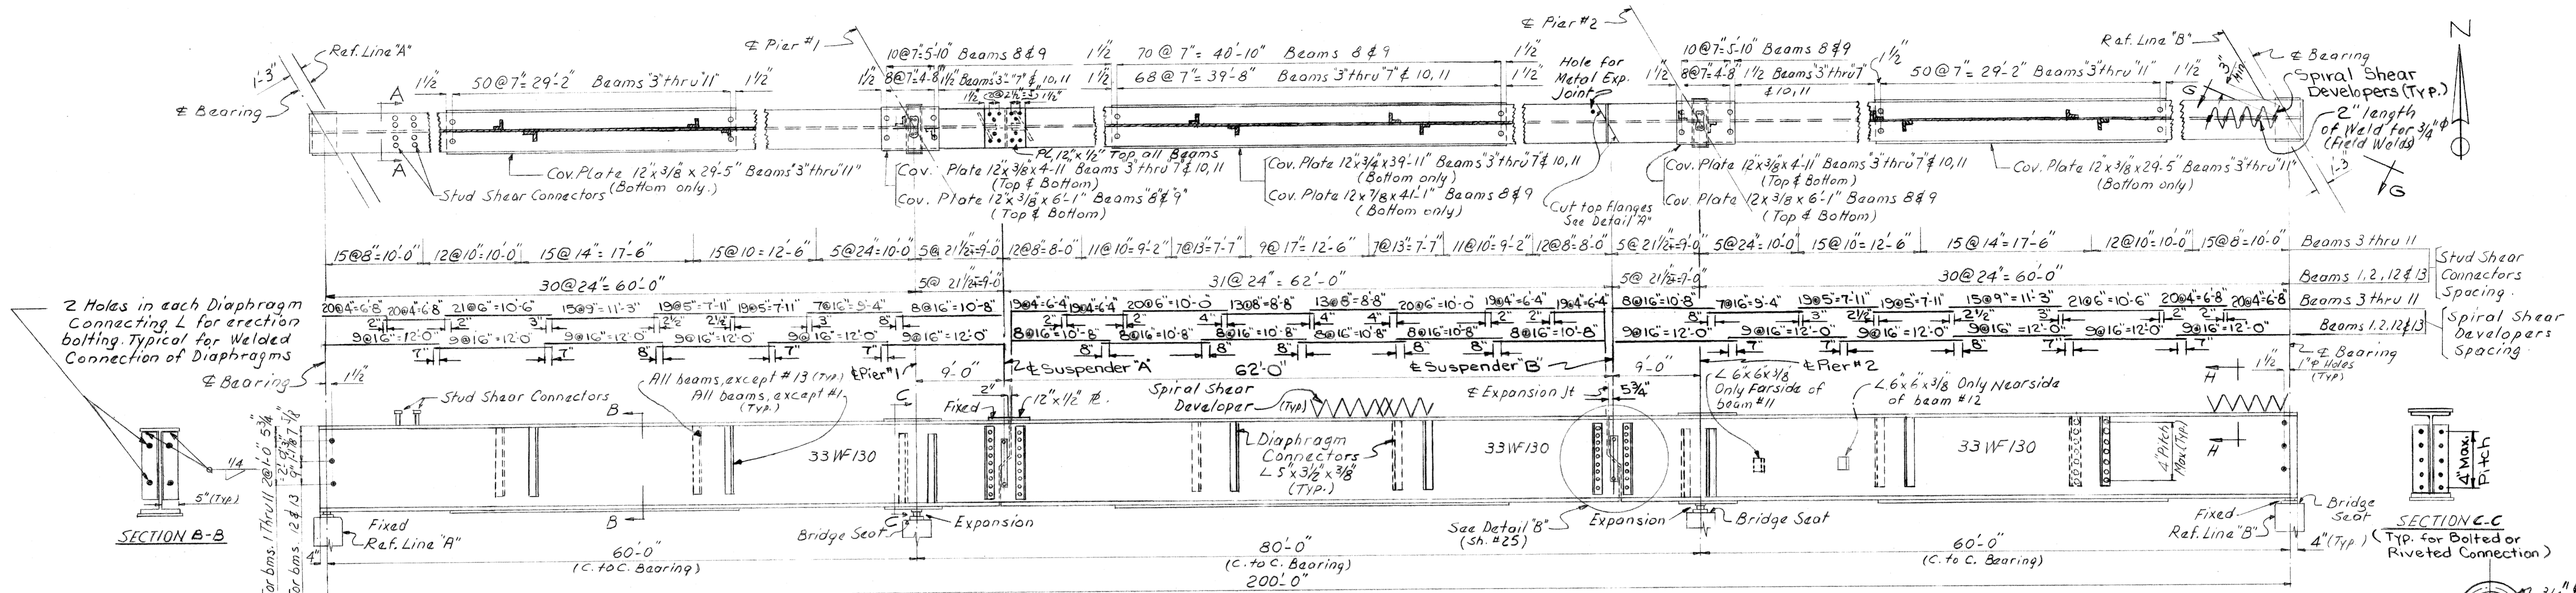 Ref. Line "A"
1'-3"
℄ Bearing
1½" 50@7"=29'-2" Beams "3" thru "11" 1½"
A
A
Cov. Plate 12"x3/8"x29'-5" Beams "3" thru "11"
(Bottom only.)
Stud Shear Connectors
℄ Pier #1
10@7"=5'-10" Beams 8&9
1½" 8@7"=4'-8" 1½" Beams "3"-"7" & 10,11
1½" 2@2½"=5" 1½"
PL 12"x½" Top, all Beams
Cov. Plate 12"x3/8"x4'-11" Beams "3" thru "7" & 10,11
(Top & Bottom)
Cov. Plate 12"x3/8"x6'-1" Beams "8" & "9"
(Top & Bottom)
1½" 70@7"=40'-10" Beams 8&9 1½"
1½" 68@7"=39'-8" Beams "3" thru "7" & 10,11 1½"
Cov. Plate 12"x3/4"x39'-11" Beams "3" thru "7" & 10,11
(Bottom only)
Cov. Plate 12"x7/8"x41'-1" Beams 8&9
(Bottom only)
Hole for
Metal Exp.
Joint
Cut top flanges
See Detail "A"
℄ Pier #2
10@7"=5'-10" Beams 8&9
1½" 8@7"=4'-8" 1½" Beams "3" thru "7"
& 10,11
Cov. Plate 12"x3/8"x4'-11" Beams "3" thru "7" & 10,11
(Top & Bottom)
Cov. Plate 12"x3/8"x6'-1" Beams 8&9
(Top & Bottom)
1½"
50@7"=29'-2" Beams "3" thru "11" 1½"
Cov. Plate 12"x3/8"x29'-5" Beams "3" thru "11"
(Bottom only)
Ref. Line "B"
℄ Bearing
3" Min.
G
Spiral Shear
Developers (Typ.)
2" length
of Weld for 3/4"φ
(Field Welds)
1'-3"
G
N
15@8"=10'-0" 12@10"=10'-0" 15@14"=17'-6" 15@10"=12'-6" 5@24"=10'-0" 5@21½"±=9'-0" 12@8"=8'-0" 11@10"=9'-2" 7@13"=7'-7" 9@17"=12'-6" 7@13"=7'-7" 11@10"=9'-2" 12@8"=8'-0" 5@21½"±=9'-0" 5@24"=10'-0" 15@10"=12'-6" 15@14"=17'-6" 12@10"=10'-0" 15@8"=10'-0" Beams 3 thru 11
30@24"=60'-0" 5@21½"±=9'-0" 31@24"=62'-0" 5@21½"±=9'-0" 30@24"=60'-0" Beams 1,2,12&13
Stud Shear
Connectors
Spacing.
20@4"=6'-8" 20@4"=6'-8" 21@6"=10'-6" 15@9"=11'-3" 19@5"=7'-11" 19@5"=7'-11" 7@16"=9'-4" 8@16"=10'-8" 19@4"=6'-4" 19@4"=6'-4" 20@6"=10'-0" 13@8"=8'-8" 13@8"=8'-8" 20@6"=10'-0 19@4"=6'-4" 19@4"=6'-4" 8@16"=10'-8" 7@16"=9'-4" 19@5"=7'-11" 19@5"=7'-11" 15@9"=11'-3" 21@6"=10'-6" 20@4"=6'-8" 20@4"=6'-8" Beams 3 thru 11
2" 2" 3" 2½" 2½" 3" 8" 2" 2" 4" 4" 2" 2" 8" 3" 2½" 2½" 3" 2" 2"
9@16"=12'-0" 9@16"=12'-0" 9@16"=12'-0" 9@16"=12'-0" 9@16"=12'-0" 9@16"=12'-0" 8@16"=10'-8" 8@16"=10'-8" 8@16"=10'-8" 8@16"=10'-8" 8@16"=10'-8" 8@16"=10'-8" 9@16"=12'-0" 9@16"=12'-0" 9@16"=12'-0" 9@16"=12'-0" 9@16"=12'-0" 9@16"=12'-0" Beams 1,2,12&13
7" 7" 8" 7" 7" 8" 8" 8" 8" 8" 7" 7" 8" 7" 7"
Spiral Shear
Developers
Spacing.
2 Holes in each Diaphragm
Connecting L for erection
bolting. Typical for Welded
Connection of Diaphragms
℄ Bearing
1½"
Stud Shear Connectors
All beams, except #13 (Typ.)
All beams, except #1
(Typ.)
℄ Pier #1
9'-0"
℄ Suspender "A"
62'-0"
℄ Suspender "B"
9'-0"
℄ Pier #2
2"
12"x½" PL.
Fixed
Spiral Shear
Developer (Typ.)
℄ Expansion Jt
5¾"
L 6"x6"x3/8"
Only Farside of
beam #11
L 6"x6"x3/8" Only Nearside
of beam #12
H
H
1½"
℄ Bearing
1"φ Holes
(Typ)
1/4
5" (Typ.)
SECTION B-B
For bms. 1 thru 11 2@1'-0" 5¾"
For bms. 12 & 13
B
B
33WF130
C
C
Diaphragm
Connectors
L 5"x3½"x3/8"
(Typ.)
33WF130
33WF130
4" Pitch
Max (Typ.)
4" Max.
Pitch
Fixed
Ref. Line "A"
4"
Bridge Seat
Expansion
See Detail "B"
(Sh. #25)
Expansion
Bridge Seat
Fixed
Ref. Line "B"
Bridge
Seat
4" (Typ.)
SECTION C-C
(Typ. for Bolted or
Riveted Connection)
60'-0"
(C. to C. Bearing)
80'-0"
(C. to C. Bearing)
60'-0"
(C. to C. Bearing)
200'-0"